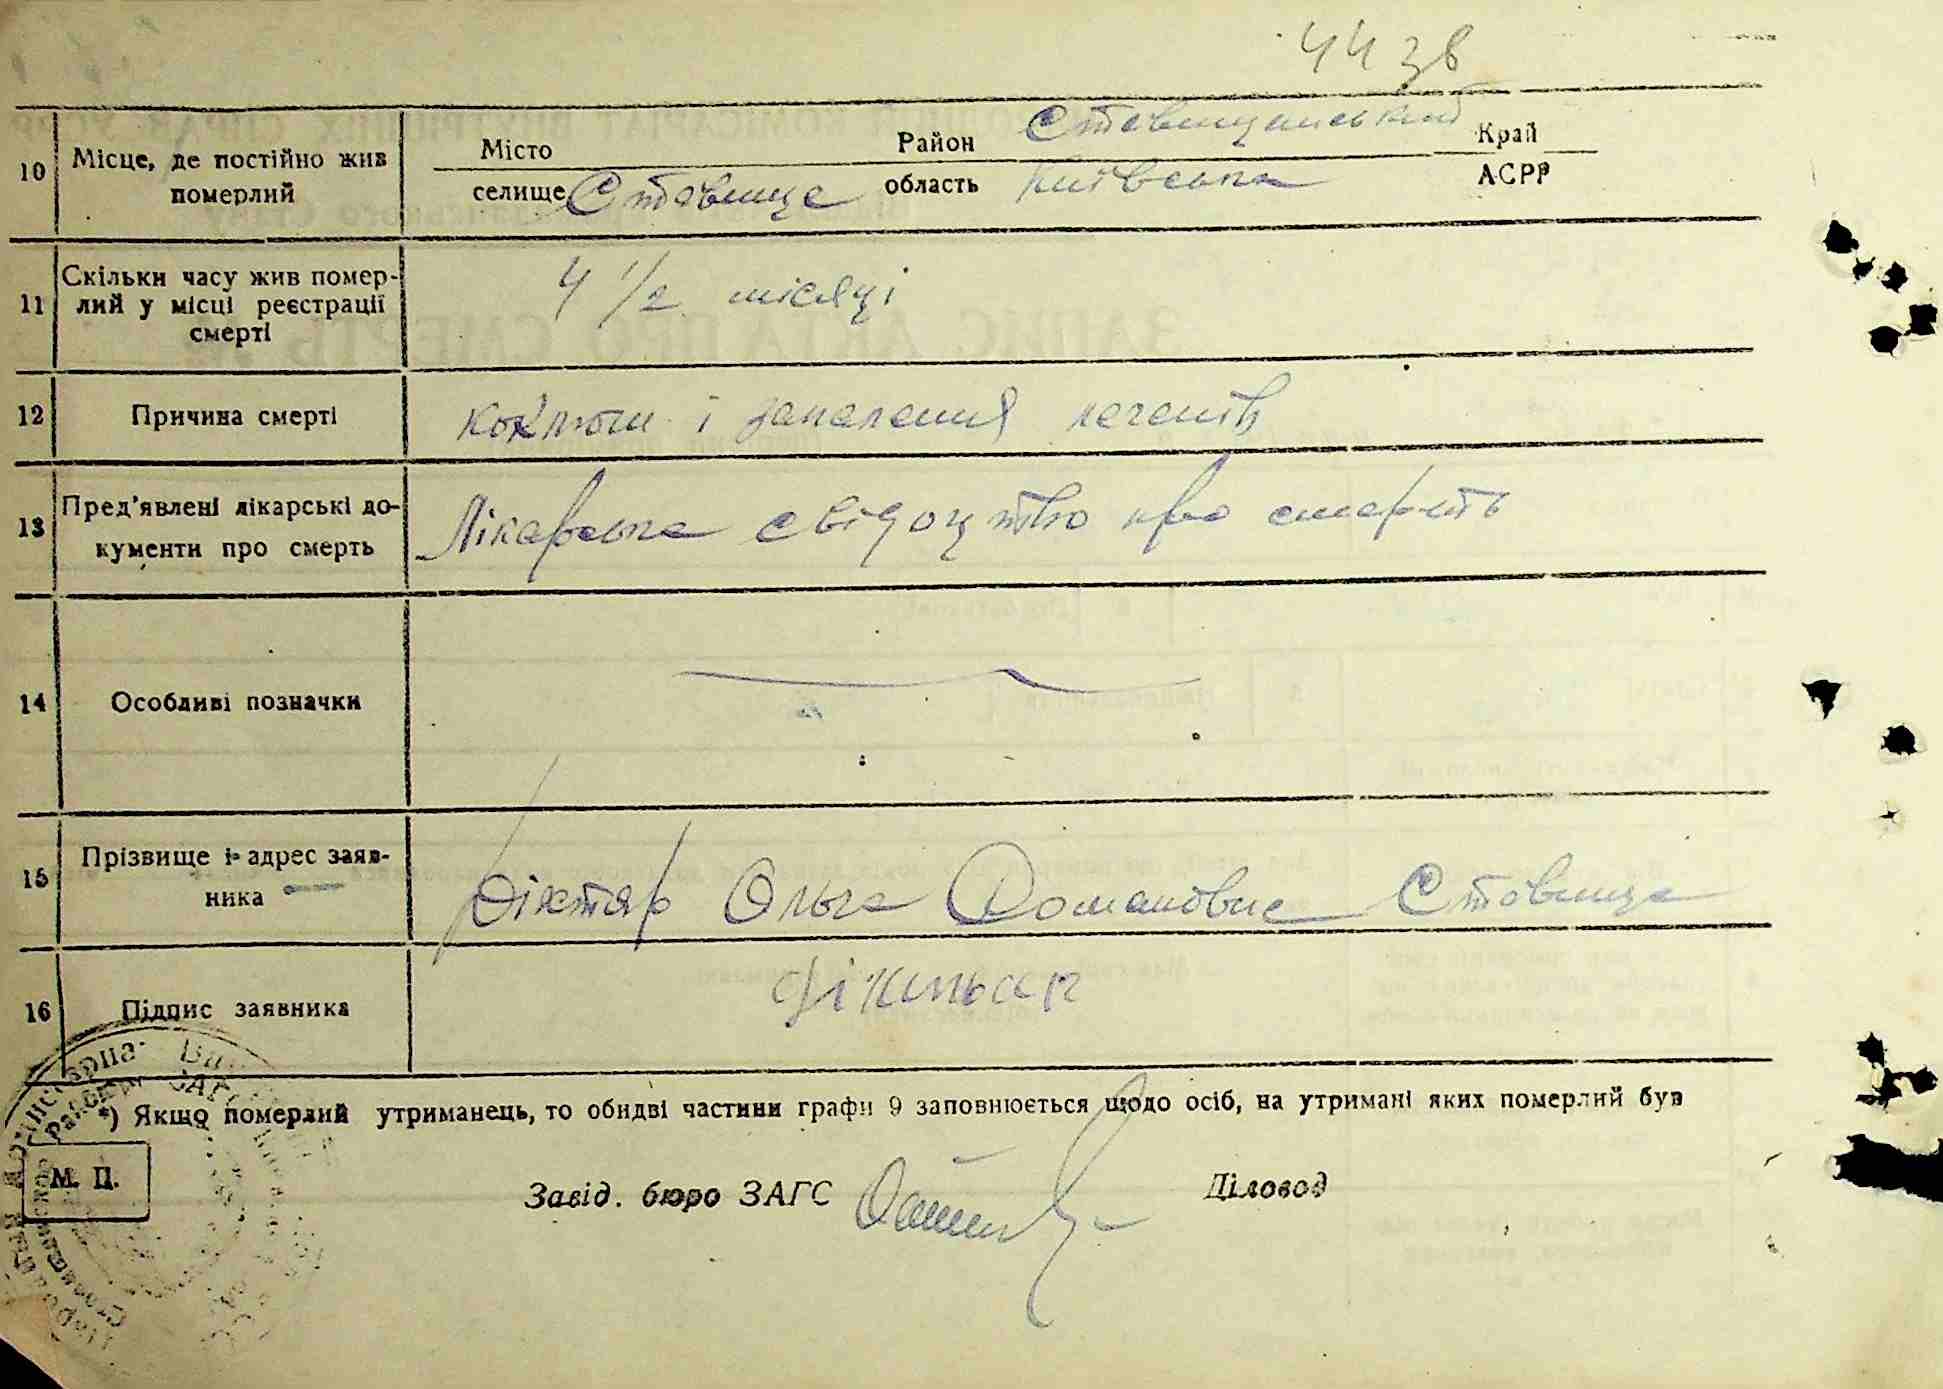 44 зв
10 Місце, де постійно жив померлий Місто Район Ставищанський Край
селище Ставище область Київська АСРР
11 Скільки часу жив помер-
лий у місці реєстрації
смерті 4 1/2 місяці
12 Причина смерті кок'люш і запалення легенів
13 Пред'явлені лікарські до-
кументи про смерть Лікарська свідоцтво про смерть
14 Особливі позначки
15 Прізвище і адрес заяв-
ника Діхтяр Ольга Романовне Ставище
16 Підпис заявника
*) Якщо померлий утриманець, то обидві частини графи 9 заповнюється щодо осіб, на утримані яких померлий був
М. П.
Завід. бюро ЗАГС Діловод